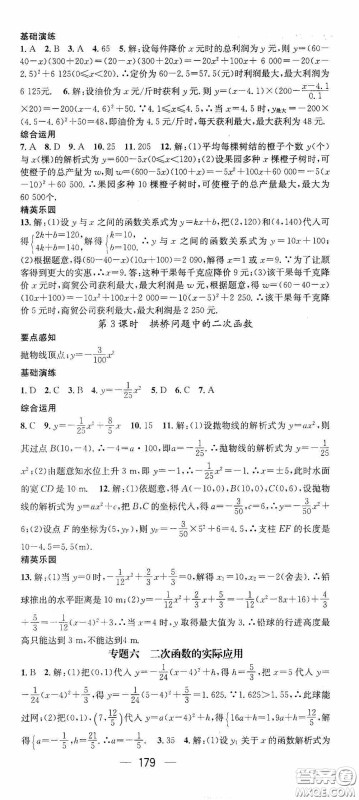 基础演练
1. A 2. B 3. A 4. 65 5. 解:设每件降价 x 元时的总利润为 y 元,则 y=(60-
40-x)(300+20x)=(20-x)(300+20x)=-20x²+100x+6 000=-20(x-
2.5)²+6 125(0≤x<20).∴定价为 60-2.5=57.5(元)时利润最大,最大利润为
6 125元. 6. 解:设油价为 x 元/升时获利 y 元,则 y=(x-4.1)(200-
×20)=-200(x-4.5)²+48. ∵4.1≤x≤4.5,∴当 x=4.5 时,
综合运用
7. A 8. D 9. A 10. 25 11. 205 12. 解:(1)平均每棵树结的橙子个数 y(个)
与 x(棵)的解析式为 y=600-5x(0≤x<120);(2)设果园多种 x 棵橙子树时,可
使橙子的总产量为 w,则 w=(600-5x)(100+x)=-5x²+100x+60 000=-5(x
-10)²+60 500. ∴果园多种 10 棵橙子树时,可使橙子的总产量最大,最大为
60 500个.
精英乐园
13. 解:(1)设 y 与 x 之间的函数关系式为 y=kx+b,把(2,120)和(4,140)代入可
得{2k+b=120, 4k+b=140, 解得{k=10, b=100. ∴y 与 x 之间的函数关系式为 y=10x+100;
(2)根据题意,得(60-40-x)(10x+100)=2 090,解得 x=1 或 x=9. ∵为了让顾
客得到更大的实惠,∴x=9. 答:这种干果每千克应降价 9 元;(3)该干果每千克降
价 x 元,商贸公司获得利润最大,最大利润是 w 元,根据题意,得 w=(60-40-
x)(10x+100)=-10x²+100x+2000=-10(x-5)²+2 250. ∴该干果每千克降
价 5 元时,商贸公司获利最大,最大利润是 2 250 元.
第 3 课时 拱桥问题中的二次函数
要点感知
抛物线顶点;y=-3/100x²
基础演练
1. D 2. C 3. A 4. D 5. C 6. D 7. A
综合运用
8. C 9. y=-1/25x²+8/5x 10. 15 11. 解:(1)设抛物线的解析式为 y=ax²,则
其过点 B(10,-4). ∴-4=a·100,即a=-1/25. ∴抛物线的解析式为y=-1/25
x²;(2)由题意知水位上升 3 m,即 y=-1,∴-1=-1/25x²,∴x=±5,此时水面
的宽 CD 是 10 m. 12. 解:(1)依题意,得 A(-10,0),B(10,0),C(0,6),设抛物
线的解析式为 y=ax²+c,把 B,C 的坐标代入,得 a=-3/50,c=6. ∴y=-3/50x²+
6;(2)设点 F 的坐标为(5,yF),则 yF=-3/50×5²+6=4.5. ∴支柱 EF 的长度是
10-4.5=5.5(m).
精英乐园
13. 解:(1)当 y=0 时,-1/12x²+2/3x+5/3=0,解得 x₁=10,x₂=-2(舍去). ∴铅
球推出的水平距离是 10 m;(2)y=-1/12x²+2/3x+5/3=-1/12(x²-8x+16)+4/3
+5/3=-1/12(x-4)²+3,当 x=4 时,y 取得最大值为 3. ∴铅球的行进高度最
高只能达到 3 m,不能达到4 m.
专题六 二次函数的实际应用
1. B 2. 解:(1)把(0,1)代入 y=-1/24(x-4)²+h,得 h=5/3,把 x=5 代入 y=
-1/24(x-4)²+5/3,得 y=-1/24(5-4)²+5/3=1.625,∵1.625>1.55,∴此球能
过网;(2)把(0,1),(7,12/5)代入 y=a(x-4)²+h,得{16a+h=1, 9a+h=12/5,解
得{a=-1/5, h=21/5. ∴a=-1/5. 3. 35 4. 解:(1)设 y₁ 关于 x 的函数解析式为
179
答案圈